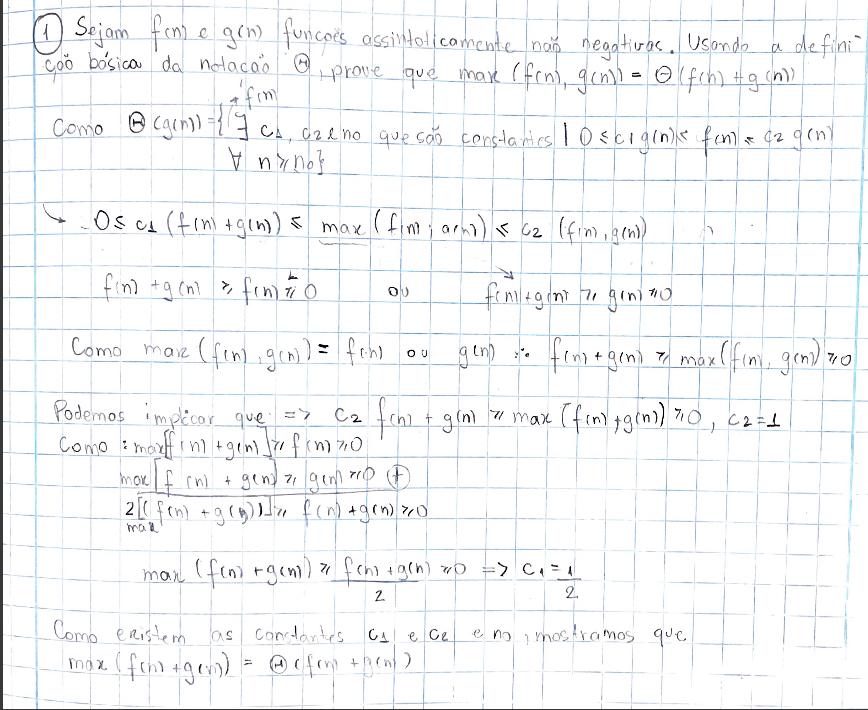 ① Sejam f(n) e g(n) funções assintoticamente não negativas. Usando a defini-
ção básica da notação Θ, prove que max (f(n), g(n)) = Θ(f(n) + g(n))
f(n)
Como Θ(g(n)) = { ∃ c1, c2 e no que são constantes | 0 ≤ c1 g(n) ≤ f(n) ≤ c2 g(n)
∀ n ≥ no}
↳ 0 ≤ c1 (f(n) + g(n)) ≤ max (f(n), g(n)) ≤ c2 (f(n), g(n))
f(n) + g(n) ≥ f(n) ≥ 0 ou f(n) + g(n) ≥ g(n) ≥ 0
Como max (f(n), g(n)) = f(n) ou g(n) ∴ f(n) + g(n) ≥ max(f(n), g(n)) ≥ 0
Podemos implicar que => c2 f(n) + g(n) ≥ max [f(n) + g(n)] ≥ 0, c2 = 1
Como : max[f(n) + g(n)] ≥ f(n) ≥ 0
max [f(n) + g(n)] ≥ g(n) ≥ 0 ⊕
2[(f(n) + g(n))] ≥ f(n) + g(n) ≥ 0
max
max (f(n) + g(n)) ≥ f(n) + g(n) ≥ 0 => c1 = 1
2 2
Como existem as constantes c1 e c2 e no, mostramos que
max (f(n) + g(n)) = Θ(f(n) + g(n))